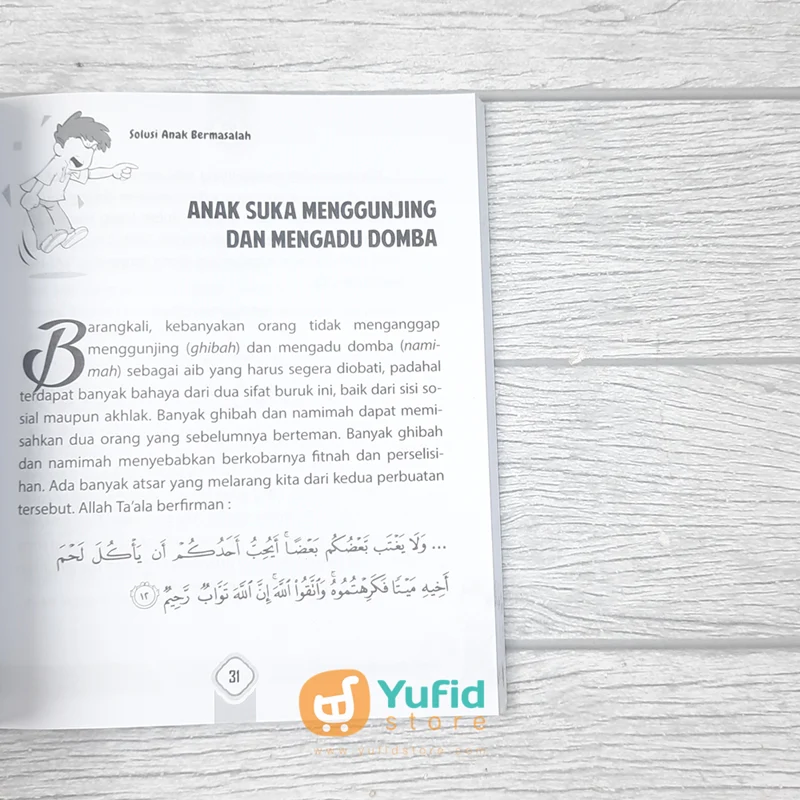 Solusi Anak Bermasalah
ANAK SUKA MENGGUNJING
DAN MENGADU DOMBA
Barangkali, kebanyakan orang tidak menganggap
menggunjing (ghibah) dan mengadu domba (nami-
mah) sebagai aib yang harus segera diobati, padahal
terdapat banyak bahaya dari dua sifat buruk ini, baik dari sisi so-
sial maupun akhlak. Banyak ghibah dan namimah dapat memi-
sahkan dua orang yang sebelumnya berteman. Banyak ghibah
dan namimah menyebabkan berkobarnya fitnah dan perselisi-
han. Ada banyak atsar yang melarang kita dari kedua perbuatan
tersebut. Allah Ta'ala berfirman :
... وَلَا يَغْتَب بَّعْضُكُم بَعْضًا ۚ أَيُحِبُّ أَحَدُكُمْ أَن يَأْكُلَ لَحْمَ
أَخِيهِ مَيْتًا فَكَرِهْتُمُوهُ ۚ وَاتَّقُوا اللَّهَ ۚ إِنَّ اللَّهَ تَوَّابٌ رَّحِيمٌ ١٢
31
Yufid
store
www.yufidstore.com